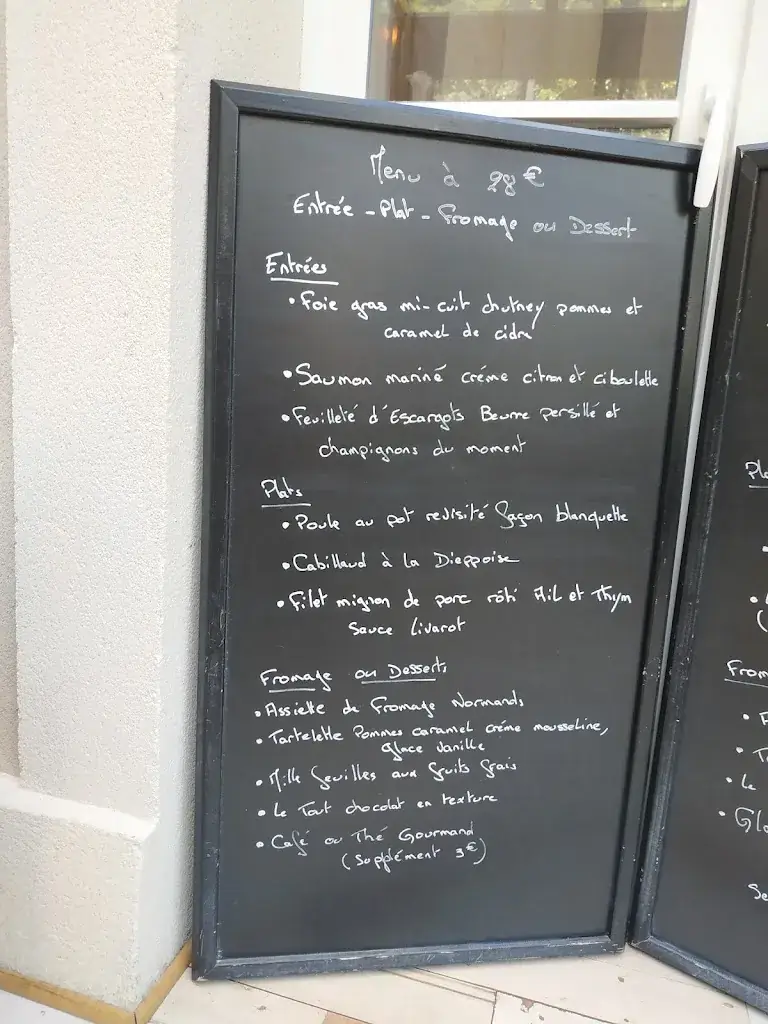 Menu à 28€
Entrée - Plat - Fromage ou Dessert
Entrées
• Foie gras mi-cuit chutney pommes et
caramel de cidre
• Saumon mariné créme citron et ciboulette
• Feuilleté d'Escargots Beurre persillé et
champignons du moment
Plats
• Poule au pot revisité façon blanquette
• Cabillaud à la Dieppoise
• Filet mignon de porc rôti Ail et Thym
Sauce Livarot
Fromage ou Desserts
• Assiette de Fromage Normands
• Tartelette Pommes caramel créme mousseline,
glace vanille
• Mille feuilles aux fruits frais
• Le Tout chocolat en texture
• Café ou Thé Gourmand
(Supplément 3€)